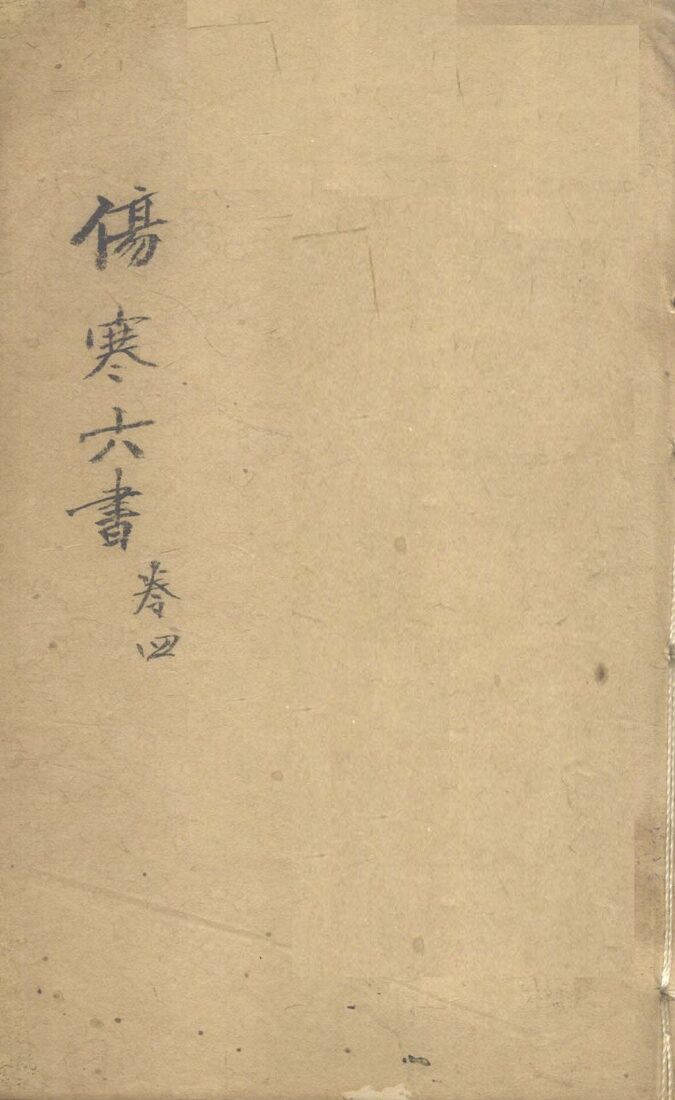 傷寒六書
卷四